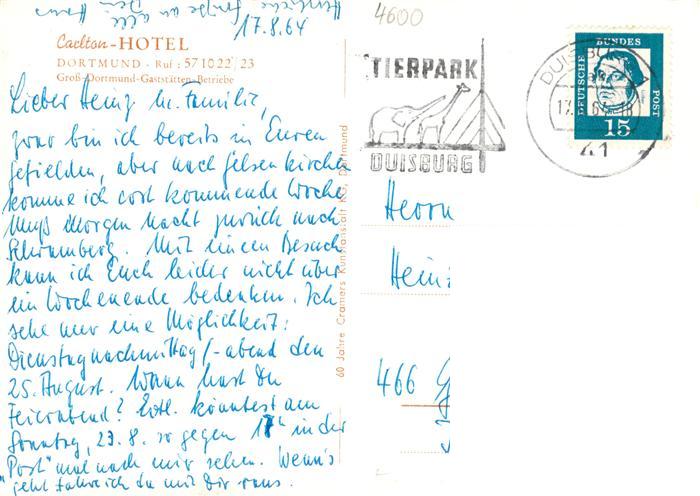 Herzliche Grüße an alle
Dein Hans
17.8.64
4600
Carlton-HOTEL
DORTMUND - Ruf: 57 10 22/23
Groß-Dortmund-Gaststätten-Betriebe
Lieber Heinz u. Familie,
zwar bin ich bereits in Euren
gefielden, aber nach Gelsenkirchen
komme ich erst kommende Woche
Muß Morgen Nacht zurück nach
Schramberg. Mit einem Besuch
kann ich Euch leider nicht über
ein Wochenende bedenken. Ich
sehe nur eine Möglichkeit:
Dienstagnachmittag/-abend den
25. August. Wann hast Du
Feierabend? Evtl. könntest am
Sonntag, 23.8. so gegen in der
"Post" mal nach mir sehen. Wenn's
geht fahre ich da mit Dir raus.
60 Jahre Cramers Kunstanstalt KG, Dortmund
TIERPARK
DUISBURG
DUISBURG
17. 8. 64-18
41
DEUTSCHE
BUNDES
POST
15
Herrn
Heinz
466 G